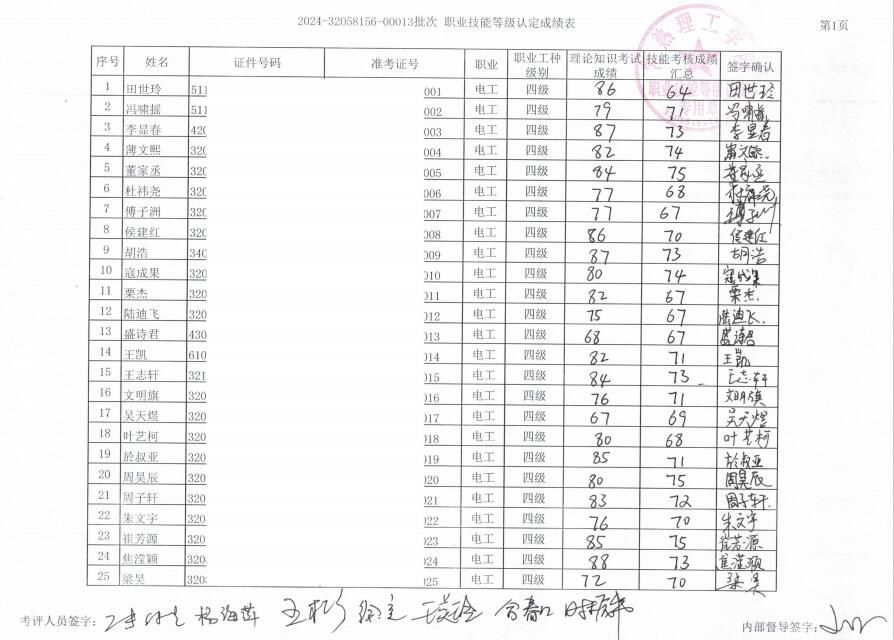 2024-32058156-00013批次 职业技能等级认定成绩表 第1页
序号 姓名 证件号码 准考证号 职业 职业工种级别 理论知识考试成绩 技能考核成绩汇总 签字确认
1 田世玲 511 001 电工 四级 86 64 田世玲
2 冯啸摇 511 002 电工 四级 79 71
3 李显春 420 003 电工 四级 87 73 李显春
4 薄文熙 320 004 电工 四级 82 74
5 董家丞 320 005 电工 四级 84 75
6 杜祎尧 320 006 电工 四级 77 68
7 傅子洲 320 007 电工 四级 77 67
8 侯建红 320 008 电工 四级 86 70 侯建红
9 胡浩 340 009 电工 四级 87 73 胡浩
10 寇成果 320 010 电工 四级 80 74 寇成果
11 栗杰 320 011 电工 四级 82 67 栗杰
12 陆迪飞 320 012 电工 四级 75 67 陆迪飞
13 盛诗君 430 013 电工 四级 68 67
14 王凯 610 014 电工 四级 82 71 王凯
15 王志轩 321 015 电工 四级 84 73 王志轩
16 文明旗 320 016 电工 四级 76 71 文明旗
17 吴天煜 320 017 电工 四级 67 69 吴天煜
18 叶艺柯 320 018 电工 四级 80 68 叶艺柯
19 於叔亚 320 019 电工 四级 85 71 於叔亚
20 周昊辰 320 020 电工 四级 80 75 周昊辰
21 周子轩 320 021 电工 四级 83 72 周子轩
22 朱文宇 320 022 电工 四级 76 70 朱文宇
23 崔芳源 320 023 电工 四级 85 75 崔芳源
24 焦滢颖 320 024 电工 四级 88 73
25 梁昊 320 025 电工 四级 72 70 梁昊
考评人员签字： 杨海萍 内部督导签字：